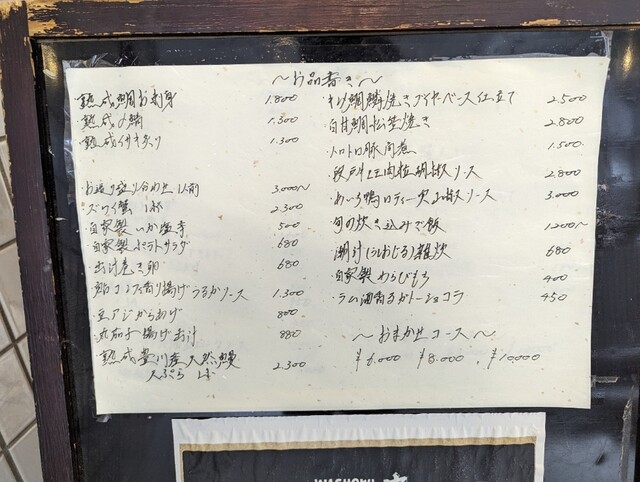 〜お品書き〜
・熟成鯛お刺身 1.800
・熟成〆鯖 1.300
・熟成 炙り 1.300
・お造り盛り合わせ 1人前 3000〜
・ズワイ蟹 1杯 2.300
・自家製いか塩辛 500
・自家製ポテトサラダ 680
・出汁巻き卵 680
・鮎コンフィ香り揚げ うるかソース 1.300
・豆アジからあげ 800
・茄子揚げ出汁 880
・熟成豊川産天然鰻 2.300
天ぷら
・キンメ鯛鱗焼き ブイヤベース仕立て 2.500
・甘鯛松笠焼き 2.800
・トロトロ豚角煮 1.500
・段戸牛 胡椒ソース 2.800
・あいち鴨ロティ 実山椒ソース 3.000
・旬の炊き込みご飯 1200〜
・潮汁(うしおじる)雑炊 680
・自家製わらびもち 400
・ラム酒香るガトーショコラ 450
〜おまかせコース〜
¥6.000 ¥8.000 . ¥10.000